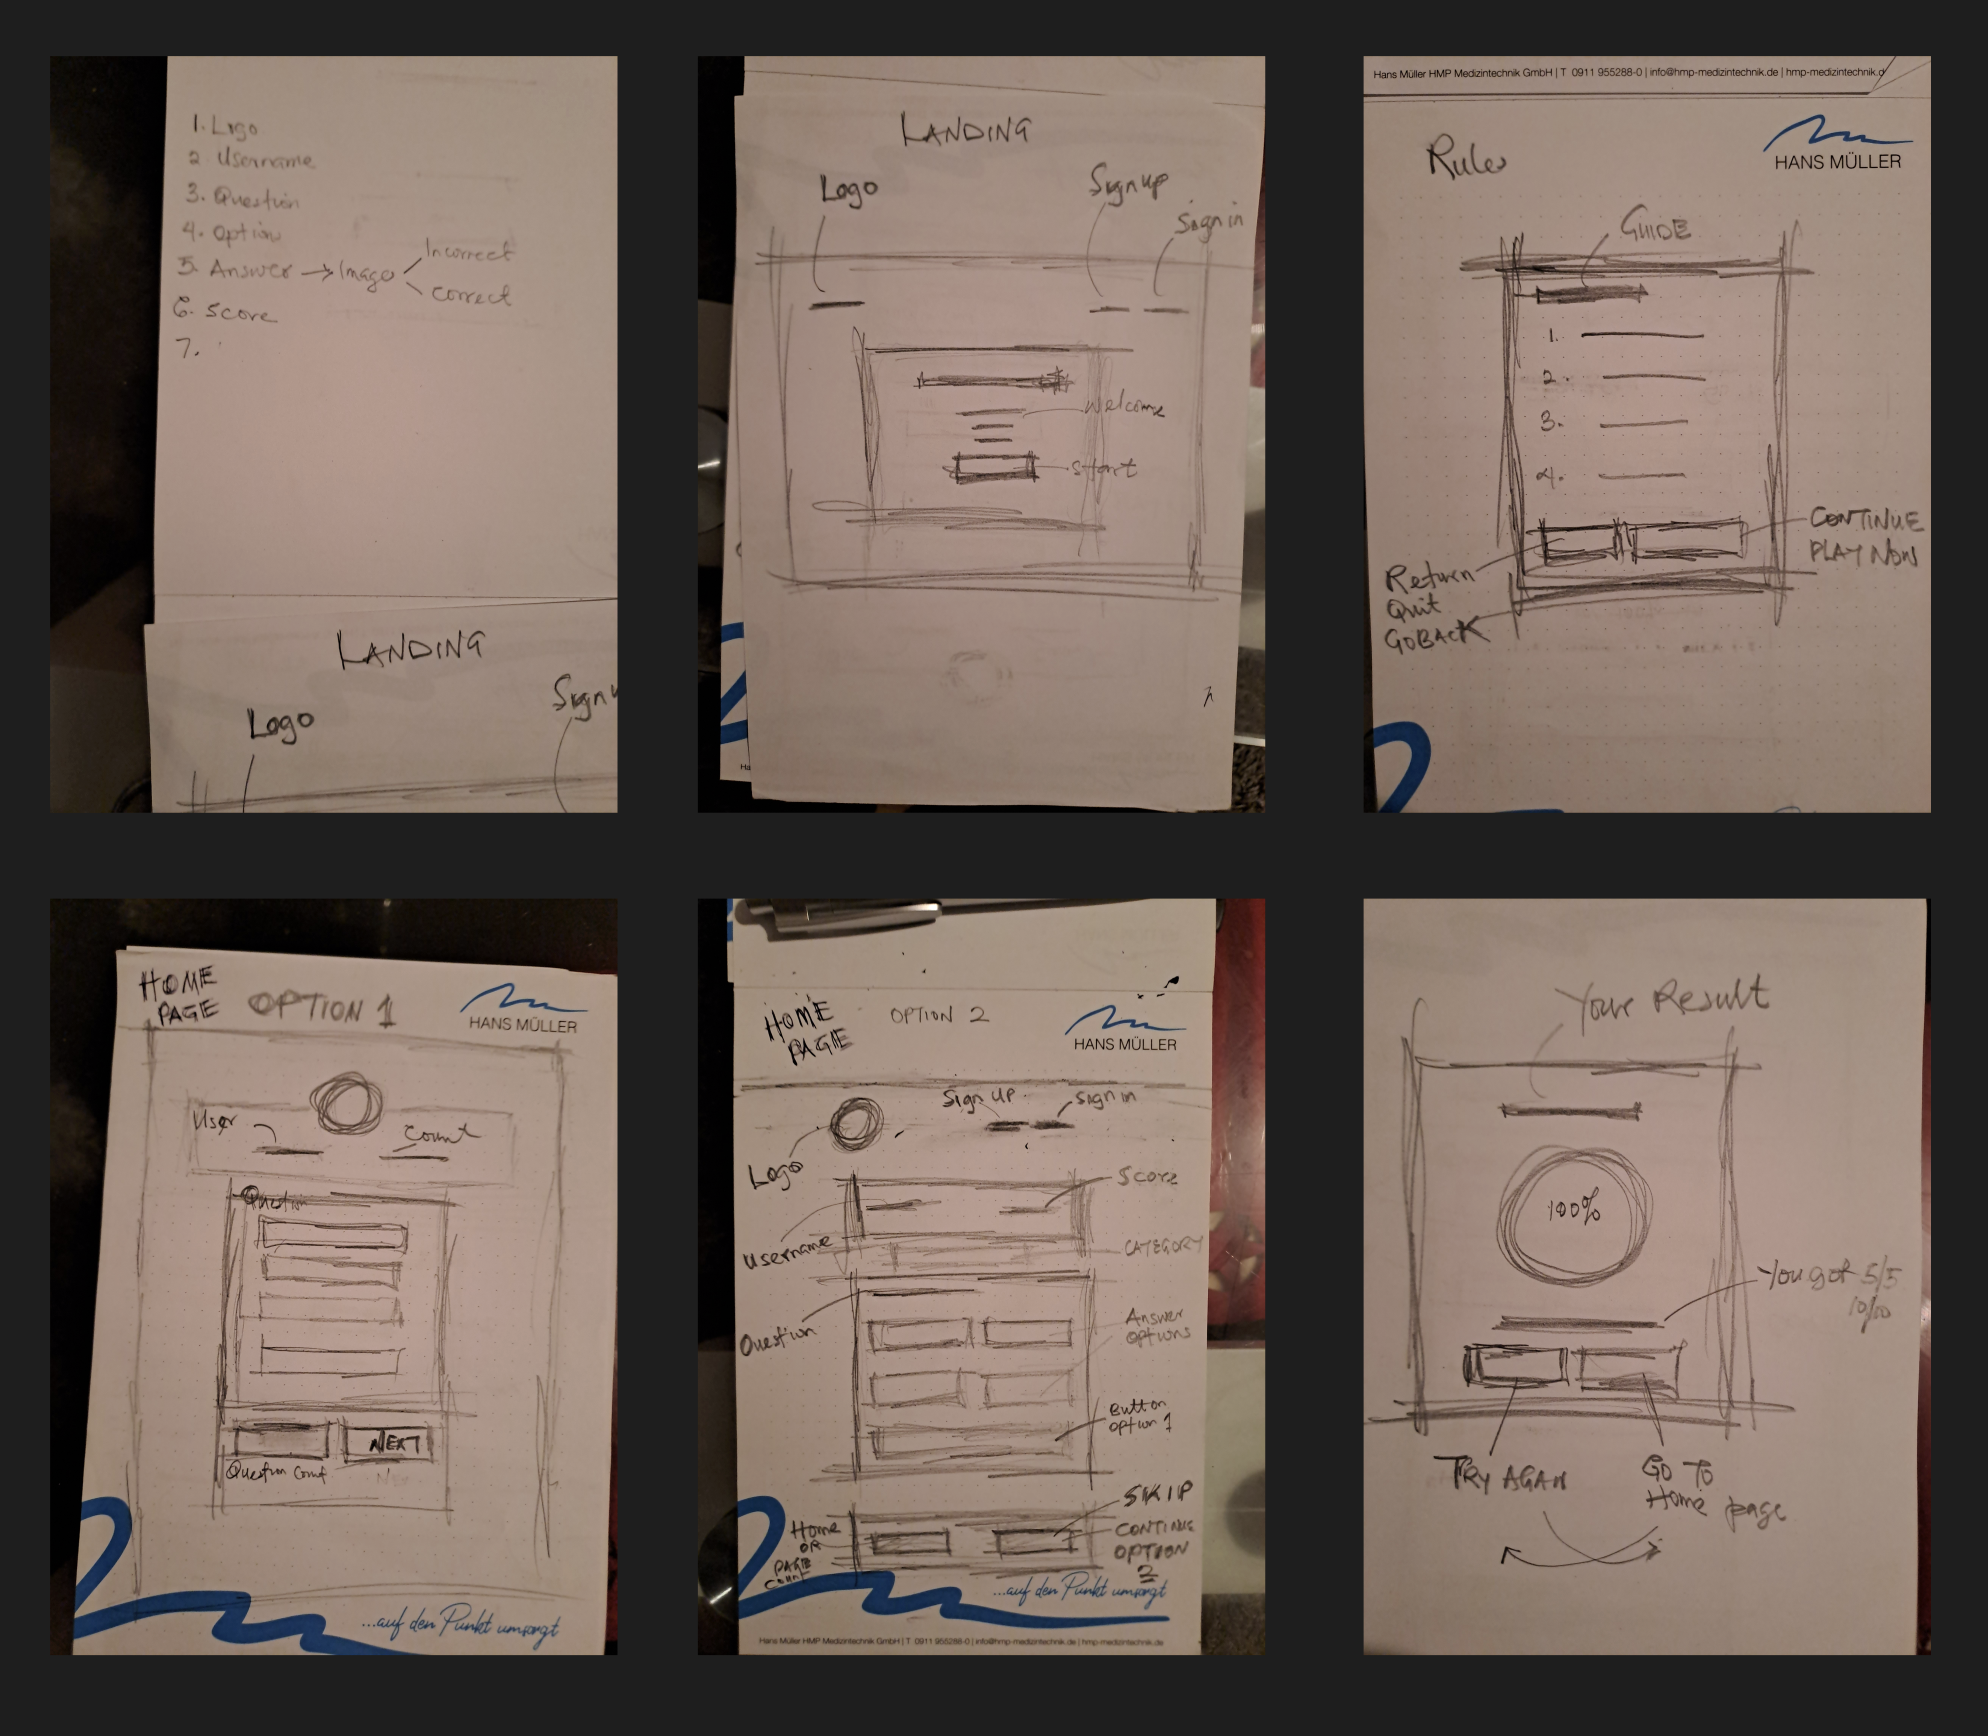 1. Logo
2 Username
3. Question
4. Option
5. Answer → Image
Incorrect
correct
6. Score
7.
LANDING
Logo
Sign u
LANDING
Logo
Sign up
Sign in
Welcome
Start
Hans Müller HMP Medizintechnik GmbH | T 0911 955288-0 | info@hmp-medizintechnik.de | hmp-medizintechnik.d
HANS MÜLLER
Rules
GUIDE
1.
2.
3.
4.
CONTINUE
PLAY NOW
Return
Quit
GO BACK
HOME
PAGE
OPTION 1
HANS MÜLLER
User
Count
Question
NEXT
Question Count
...auf den Punkt umsorgt
HOME
PAGE
OPTION 2
HANS MÜLLER
Sign UP
Sign in
Logo
Score
Username
CATEGORY
Question
Answer
options
Button
option 1
SKIP
Home
OR
PAGE
count
CONTINUE
OPTION
2
...auf den Punkt umsorgt
Hans Müller HMP Medizintechnik GmbH | T 0911 955288-0 | info@hmp-medizintechnik.de | hmp-medizintechnik.de
Your Result
100%
You got 5/5
10/10
TRY AGAIN
GO TO
Home page